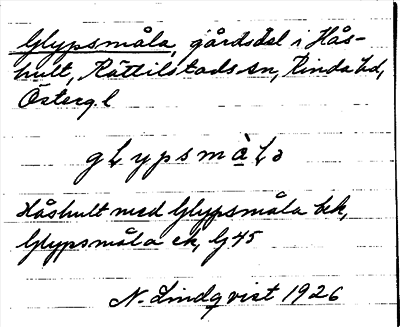 Glypsmåla, gårdsdel i Hås-
hult, Rättilstads sn, Kinda hd,
Österg. l
g L y p s m å L a
Håshult med Glypsmåla bk,
Glypsmåla ek, G 45
N. Lindqvist 1926